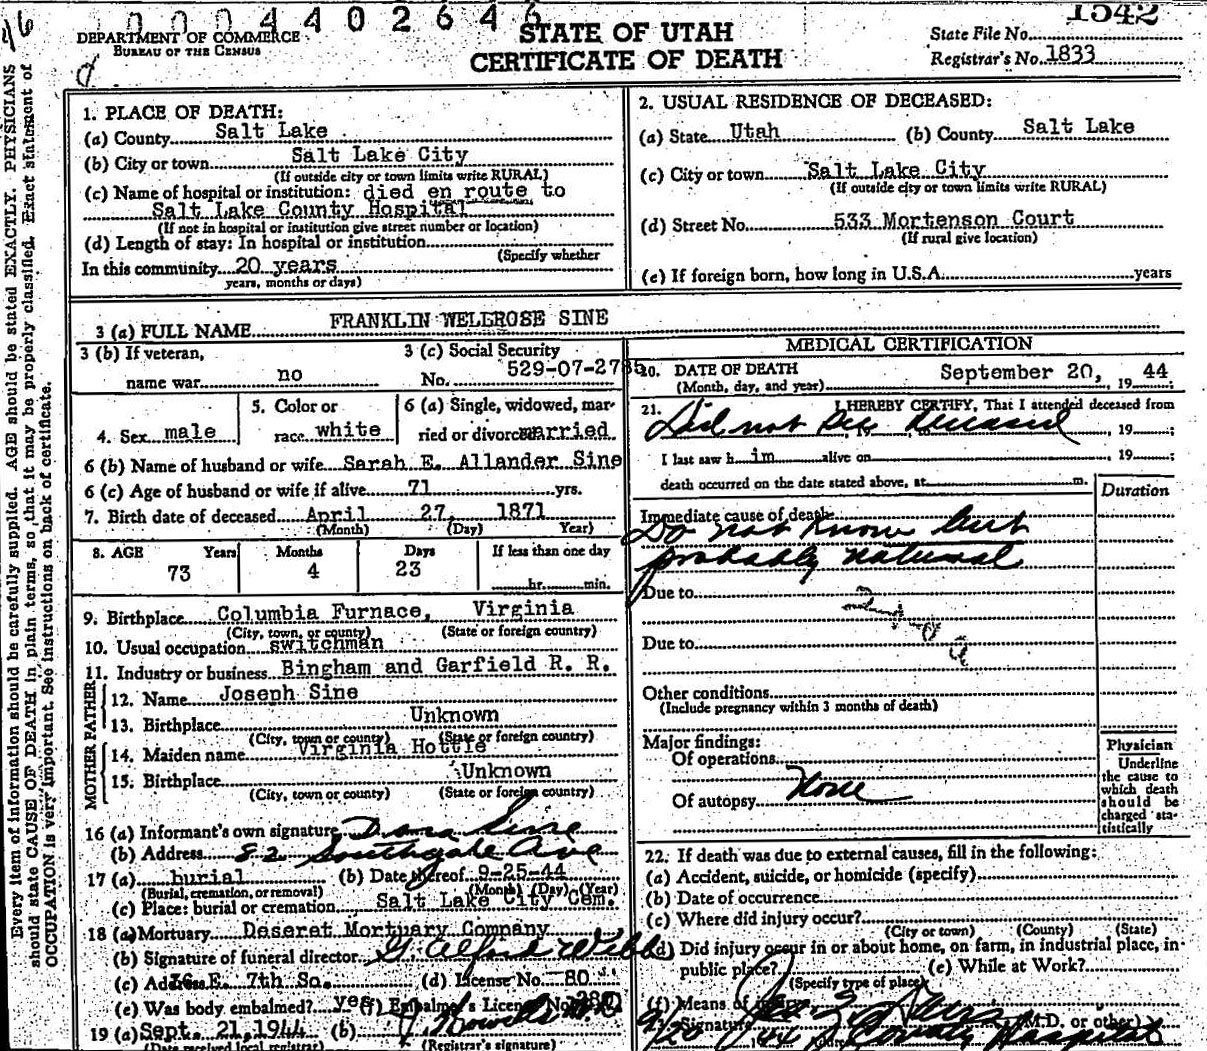 0 0 0 4 4 0 2 6 4 6
1542
DEPARTMENT OF COMMERCE
BUREAU OF THE CENSUS
STATE OF UTAH
CERTIFICATE OF DEATH
State File No.
Registrar's No. 1833
Every item of information should be carefully supplied. AGE should be stated EXACTLY. PHYSICIANS
should state CAUSE OF DEATH in plain terms, so that it may be properly classified. Exact statement of
OCCUPATION is very important. See instructions on back of certificate.
1. PLACE OF DEATH:
(a) County Salt Lake
(b) City or town Salt Lake City
(If outside city or town limits write RURAL)
(c) Name of hospital or institution: died en route to
Salt Lake County Hospital
(If not in hospital or institution give street number or location)
(d) Length of stay: In hospital or institution
(Specify whether
In this community 20 years
years, months or days)
2. USUAL RESIDENCE OF DECEASED:
(a) State Utah (b) County Salt Lake
(c) City or town Salt Lake City
(If outside city or town limits write RURAL)
(d) Street No. 533 Mortenson Court
(If rural give location)
(e) If foreign born, how long in U.S.A. years
3 (a) FULL NAME FRANKLIN WELLROSE SINE
3 (b) If veteran,
name war no
3 (c) Social Security
No. 529-07-2785
4. Sex male
5. Color or
race white
6 (a) Single, widowed, mar-
ried or divorced married
6 (b) Name of husband or wife Sarah E. Allander Sine
6 (c) Age of husband or wife if alive 71 yrs.
7. Birth date of deceased April 27, 1871
(Month) (Day) Year)
8. AGE Years Months Days If less than one day
73 4 23 hr. min.
9. Birthplace Columbia Furnace, Virginia
(City, town, or county) (State or foreign country)
10. Usual occupation switchman
11. Industry or business Bingham and Garfield R. R.
FATHER
12. Name Joseph Sine
13. Birthplace Unknown
(City, town or county) (State or foreign country)
MOTHER
14. Maiden name Virginia Hottle
15. Birthplace Unknown
(City, town or county) (State or foreign country)
16 (a) Informant's own signature Dana Sine
(b) Address 82 Southgate Ave
17 (a) burial (b) Date thereof 9-25-44
(Burial, cremation, or removal) (Month) (Day) (Year)
(c) Place: burial or cremation Salt Lake City Cem.
18 (a) Mortuary Deseret Mortuary Company
(b) Signature of funeral director G. Alford Webb
(c) Address 36 E. 7th So. (d) License No. 80
(e) Was body embalmed? yes (f) Embalmer's License No. 280
19 (a) Sept. 21, 1944 (b)
(Date received local registrar) (Registrar's signature)
MEDICAL CERTIFICATION
20. DATE OF DEATH
(Month, day, and year) September 20, 19 44
21. I HEREBY CERTIFY, That I attended deceased from
Did not see deceased, 19 ;
I last saw h im alive on , 19 ;
death occurred on the date stated above, at m.
Duration
Immediate cause of death
Do not know but
probably natural
Due to
Due to
Other conditions
(Include pregnancy within 3 months of death)
Major findings:
Of operations
Of autopsy None
Physician
Underline
the cause to
which death
should be
charged sta-
tistically
22. If death was due to external causes, fill in the following:
(a) Accident, suicide, or homicide (specify)
(b) Date of occurrence
(c) Where did injury occur?
(City or town) (County) (State)
(d) Did injury occur in or about home, on farm, in industrial place, in
public place? (e) While at Work?
(Specify type of place)
(f) Means of injury
Signature (M.D. or other)
9/20 1944 County Hospital